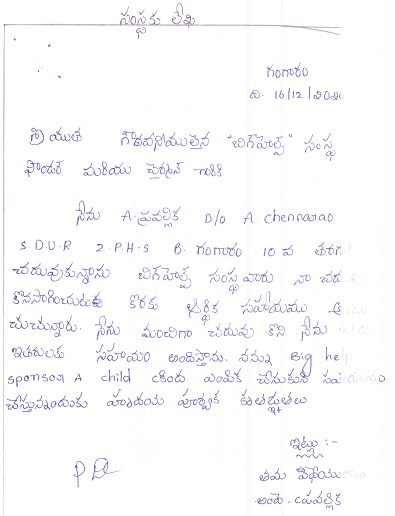 సంస్థకు లేఖ
గంగారం
ది. 16/12/2020
శ్రీ యుత గౌరవనీయులైన "బిగ్‌హెల్ప్" సంస్థ
ఫౌండర్ మరియు చైర్మన్ గారికి
నేను A. ప్రవల్లిక D/o A. chennarao
S.D.U.R Z.P.H.S B. గంగారం 10 వ తరగతి
చదువుకున్నాను బిగ్‌హెల్ప్ సంస్థ వారు నా చదువు
కొనసాగించుటకు కొరకు ఆర్థిక సహాయము
చేయుచున్నారు. నేను మంచిగా చదువు కొని నేను
ఇతరులకు సహాయం అందిస్తాను. నన్ను Big help
sponsor A child క్రింద ఎంపిక చేసుకుని సహాయము
చేస్తున్నందుకు హృదయ పూర్వక కృతజ్ఞతలు
ఇట్లు :-
తమ విధేయురాలు
అంకె. ప్రవల్లిక